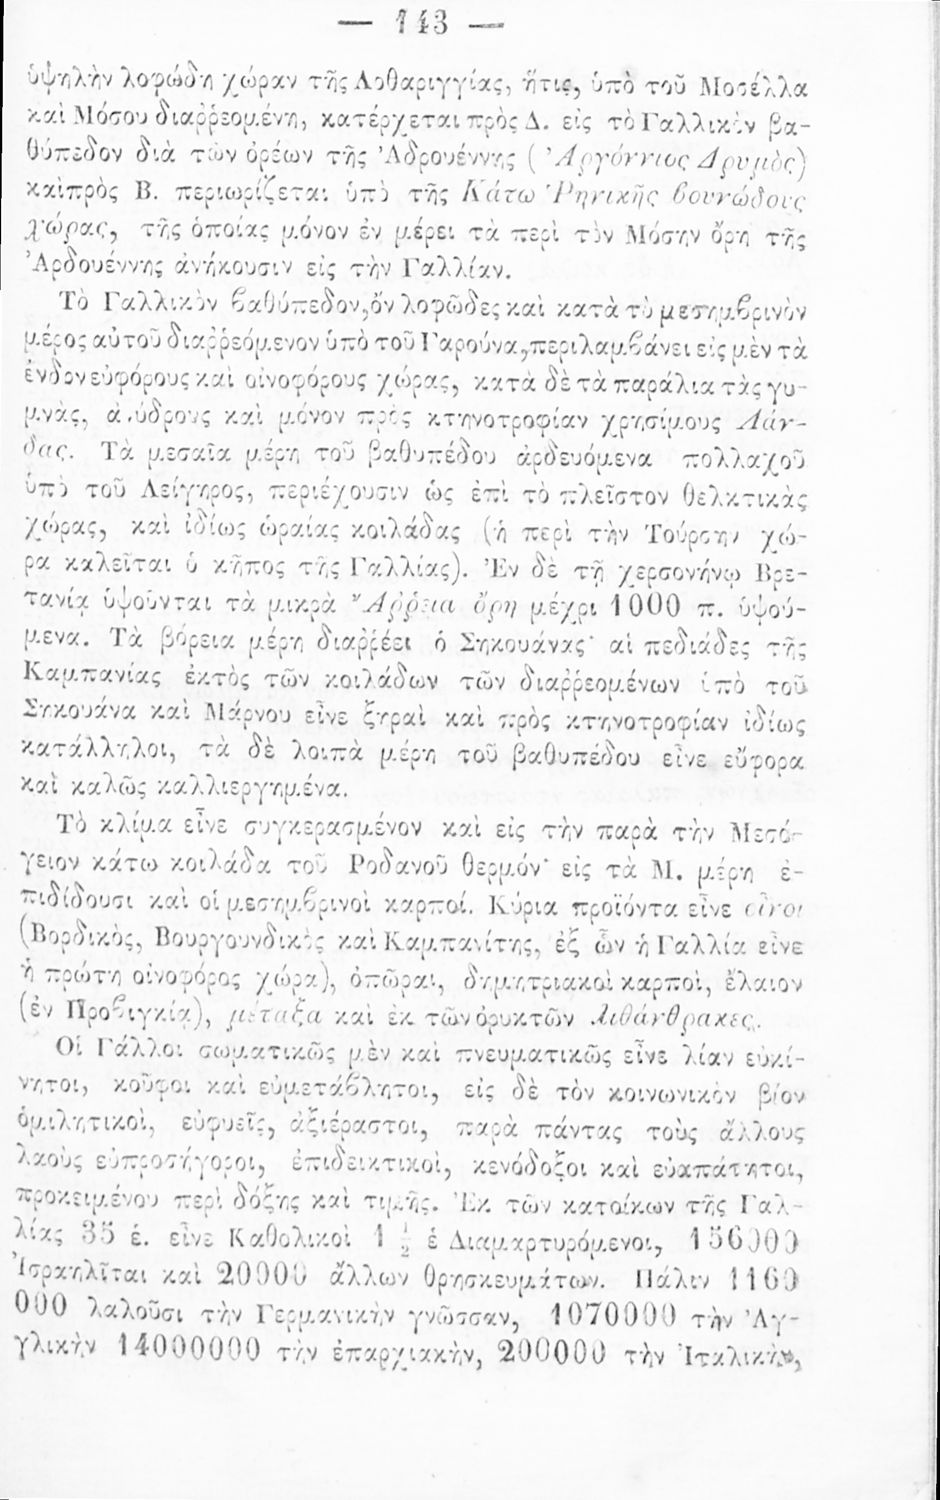 — 143 —
ὑψηλὴν λοφώδη χώραν τῆς Λοθαριγγίας, ἥτις, ὑπὸ τοῦ Μοσέλλα
καὶ Μόσου διαῤῥεομένη, κατέρχεται πρὸς Δ. εἰς τὸ Γαλλικὸν βα-
θύπεδον διὰ τῶν ὀρέων τῆς Ἀδρουέννης (Ἀργόννιος Δρυμὸς)
καὶπρὸς Β. περιωρίζεται ὑπὸ τῆς Κάτω Ῥηνικῆς βουνώδους
χώρας, τῆς ὁποίας μόνον ἐν μέρει τὰ περὶ τὸν Μόσην ὄρη τῆς
Ἀρδουέννης ἀνήκουσιν εἰς τὴν Γαλλίαν.
Τὸ Γαλλικὸν βαθύπεδον, ὂν λοφῶδες καὶ κατὰ τὸ μεσημβρινὸν
μέρος αὐτοῦ διαῤῥεόμενον ὑπὸ τοῦ Γαρούνα, περιλαμβάνει εἰς μὲν τὰ
ἔνδον εὐφόρους καὶ οἰνοφόρους χώρας, κατὰ δὲ τὰ παράλια τὰς γυ-
μνὰς, ἀνύδρους καὶ μόνον πρὸς κτηνοτροφίαν χρησίμους Λάν-
δας. Τὰ μεσαῖα μέρη τοῦ βαθυπέδου ἀρδευόμενα πολλαχοῦ
ὑπὸ τοῦ Λείγηρος, περιέχουσιν ὡς ἐπὶ τὸ πλεῖστον θελκτικὰς
χώρας, καὶ ἰδίως ὡραίας κοιλάδας (ἡ περὶ τὴν Τούρσην χώ-
ρα καλεῖται ὁ κῆπος τῆς Γαλλίας). Ἐν δὲ τῇ χερσονήνῳ Βρε-
τανίᾳ ὑψοῦνται τὰ μικρὰ Ἄῤῥεια ὄρη μέχρι 1000 π. ὑψού-
μενα. Τὰ βόρεια μέρη διαῤῥέει ὁ Σηκουάνας· αἱ πεδιάδες τῆς
Καμπανίας ἐκτὸς τῶν κοιλάδων τῶν διαῤῥεομένων ὑπὸ τοῦ
Σηκουάνα καὶ Μάρνου εἶνε ξηραὶ καὶ πρὸς κτηνοτροφίαν ἰδίως
κατάλληλοι, τὰ δὲ λοιπὰ μέρη τοῦ βαθυπέδου εἶνε εὔφορα
καὶ καλῶς καλλιεργημένα.
Τὸ κλίμα εἶνε συγκερασμένον καὶ εἰς τὴν παρὰ τὴν Μεσό-
γειον κάτω κοιλάδα τοῦ Ροδανοῦ θερμόν· εἰς τὰ Μ. μέρη ἐ-
πιδίδουσι καὶ οἱ μεσημβρινοὶ καρποί. Κύρια προϊόντα εἶνε οἶνοι
(Βορδικὸς, Βουργουνδικὸς καὶ Καμπανίτης, ἐξ ὧν ἡ Γαλλία εἶνε
ἡ πρώτη οἰνοφόρος χώρα), ὀπῶραι, δημητριακοὶ καρποὶ, ἔλαιον
(ἐν Προβιγκίᾳ), μέταξα καὶ ἐκ τῶν ὀρυκτῶν λιθάνθρακες.
Οἱ Γάλλοι σωματικῶς μὲν καὶ πνευματικῶς εἶνε λίαν εὐκί-
νητοι, κοῦφοι καὶ εὐμετάβλητοι, εἰς δὲ τὸν κοινωνικὸν βίον
ὁμιλητικοὶ, εὐφυεῖς, ἀξιέραστοι, παρὰ πάντας τοὺς ἄλλους
λαοὺς εὐπροσήγοροι, ἐπιδεικτικοὶ, κενόδοξοι καὶ εὐαπάτητοι,
προκειμένου περὶ δόξης καὶ τιμῆς. Ἐκ τῶν κατοίκων τῆς Γαλ-
λίας 35 ἑ. εἶνε Καθολικοὶ 1 ½ ἑ Διαμαρτυρόμενοι, 156000
Ἰσραηλῖται καὶ 20000 ἄλλων θρησκευμάτων. Πάλιν 1160
000 λαλοῦσι τὴν Γερμανικὴν γνῶσσαν, 1070000 τὴν Ἀγ-
γλικὴν 14000000 τὴν ἐπαρχιακὴν, 200000 τὴν Ἰταλικὴν,